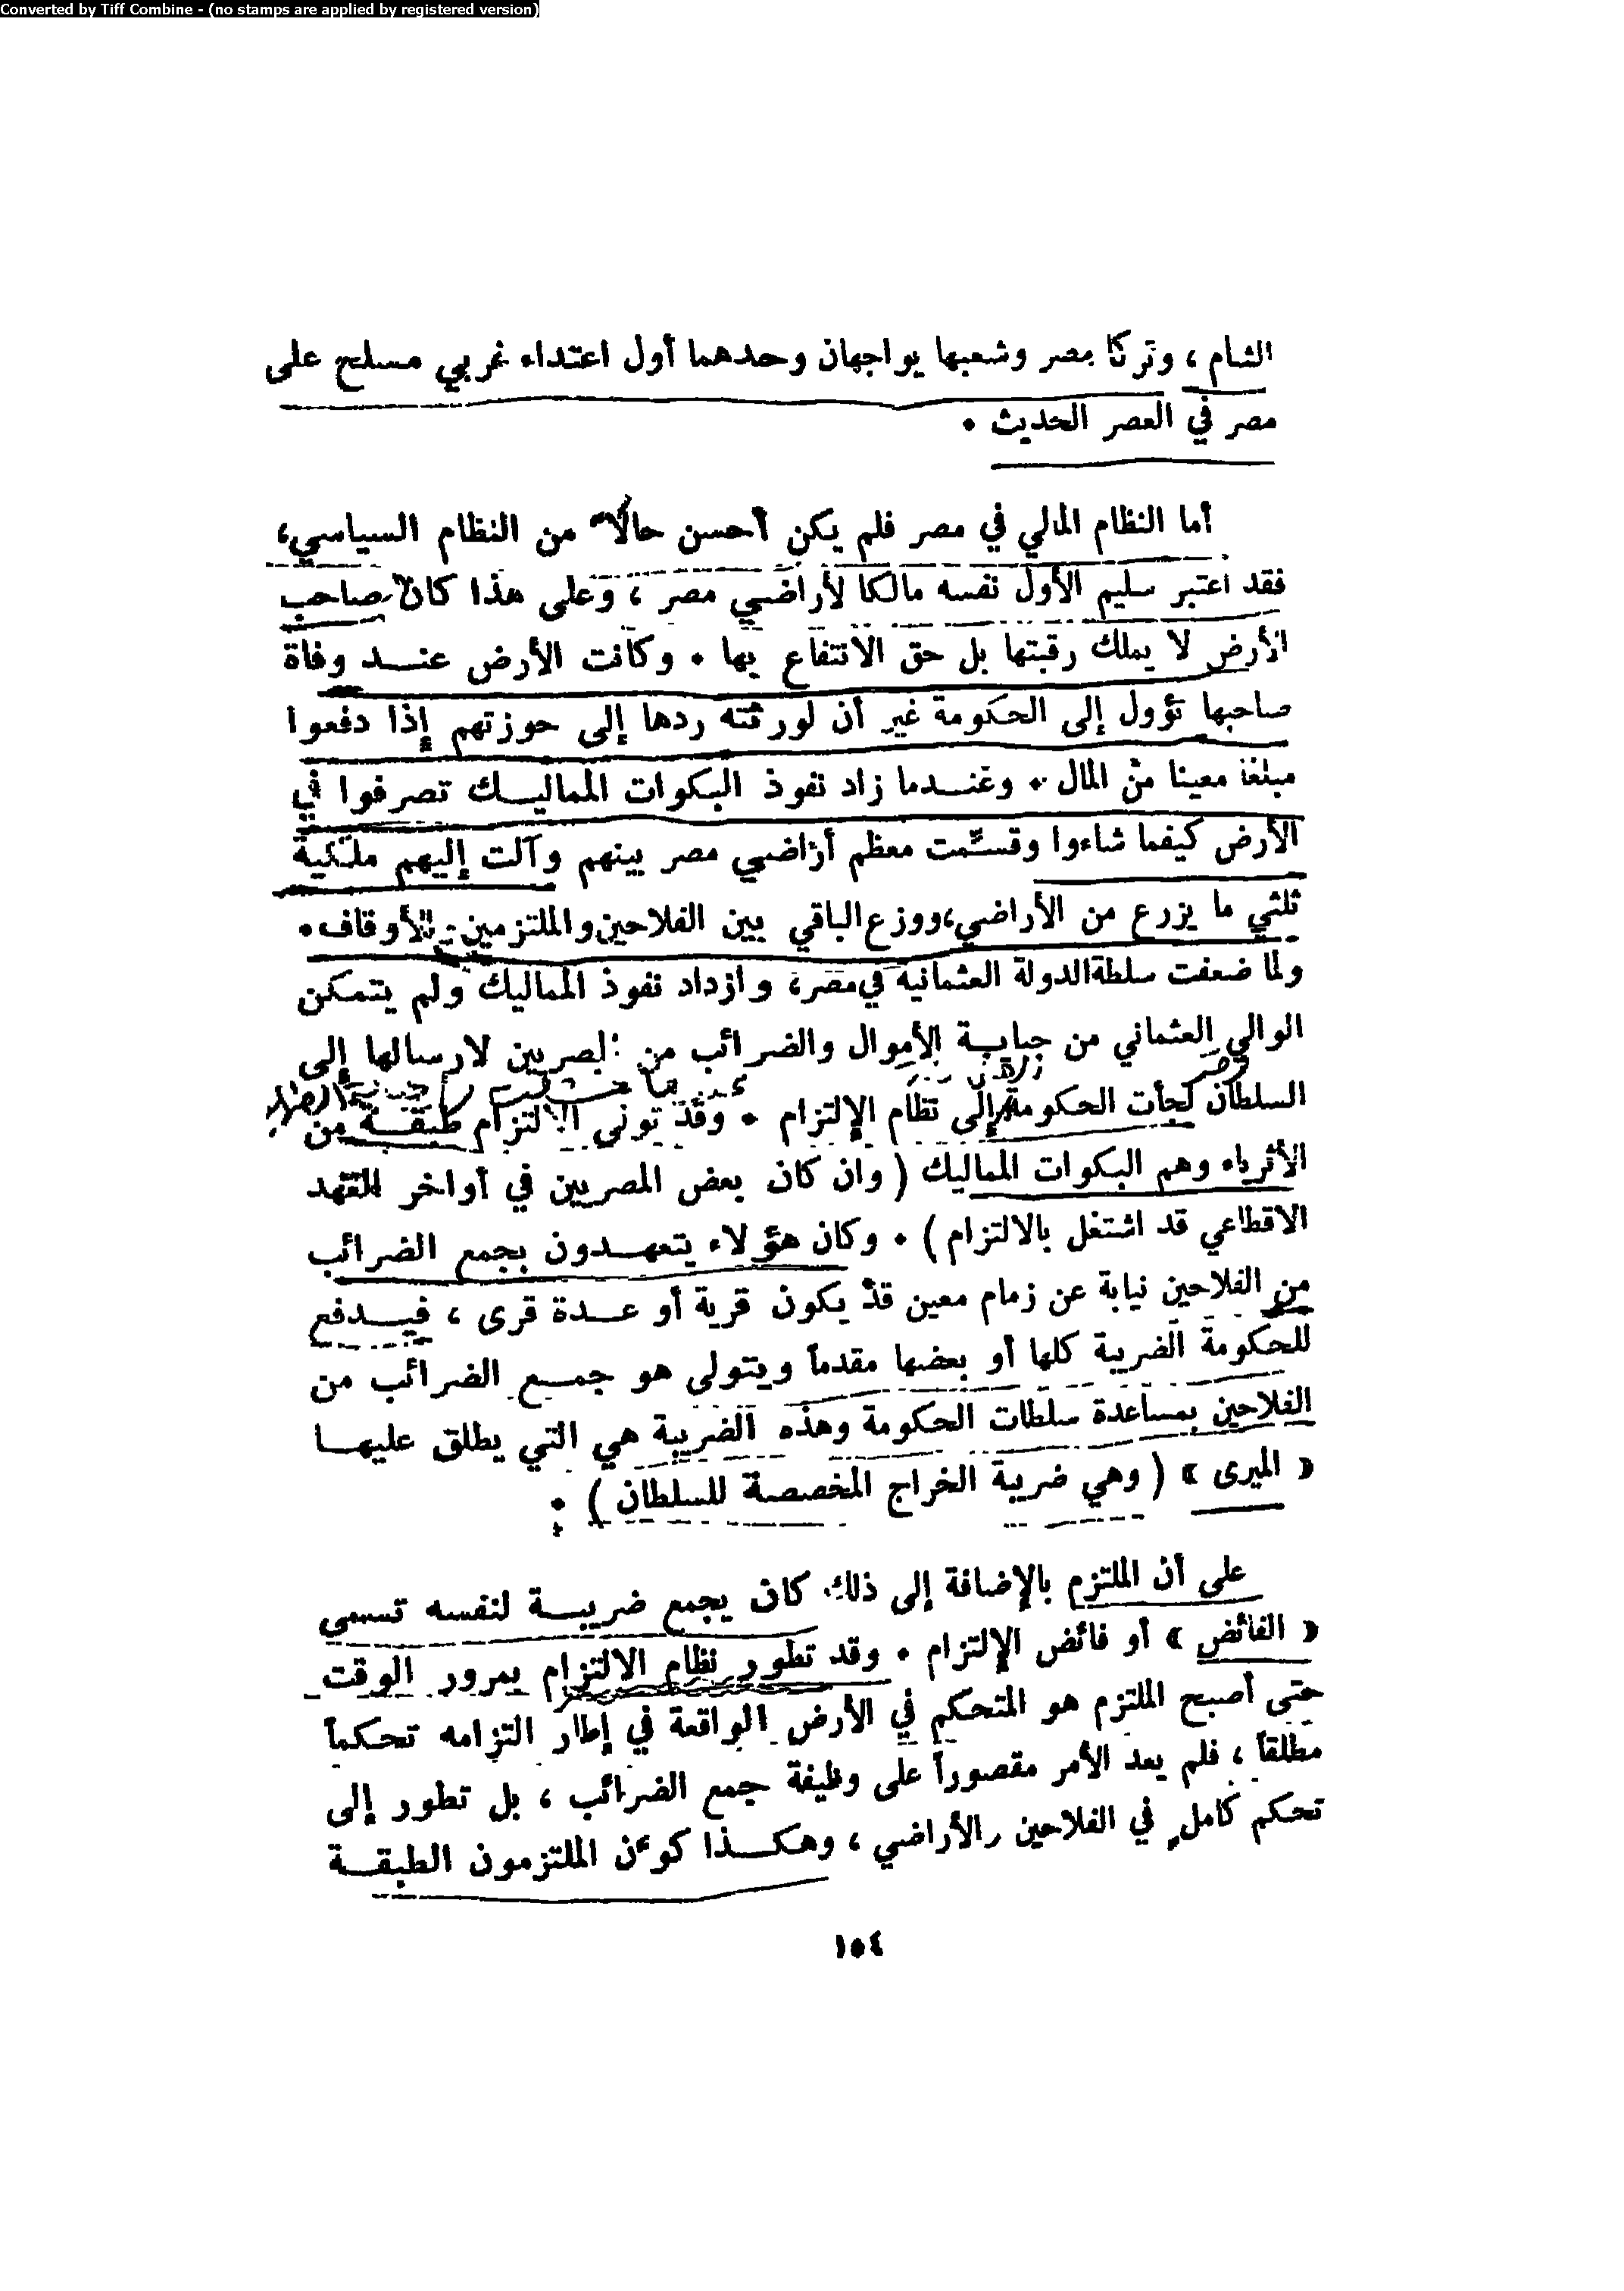 Converted by Tiff Combine - (no stamps are applied by registered version)
الشام ، وتركا مصر وشعبها يواجهان وحدهما أول اعتداء غربي مسلح على
مصر في العصر الحديث .
أما النظام المالي في مصر فلم يكن أحسن حالاً من النظام السياسي،
فقد اعتبر سليم الأول نفسه مالكا لأراضي مصر ، وعلى هذا كان صاحب
الأرض لا يملك رقبتها بل حق الانتفاع بها . وكانت الأرض عنــد وفاة
صاحبها تؤول إلى الحكومة غير أن لورثته ردها إلى حوزتهم إذا دفعوا
مبلغا معينا من المال . وعنــدما زاد نفوذ البكوات المماليــك تصرفوا في
الأرض كيفما شاءوا وقسّمت معظم أراضي مصر بينهم وآلت إليهم ملكية
ثلثي ما يزرع من الأراضي،ووزع الباقي بين الفلاحين والملتزمين والأوقاف.
ولما ضعفت سلطة الدولة العثمانية في مصر، وازداد نفوذ المماليك ولم يتمكن
الوالي العثماني من جبايــة الأموال والضرائب من المصريين لارسالها إلى
السلطان لجأت الحكومة إلى نظام الإلتزام . وقد تولى الالتزام طبقــة من
الأثرياء وهم البكوات المماليك ( وان كان بعض المصريين في أواخر العهد
الاقطاعي قد اشتغل بالالتزام ) . وكان هؤلاء يتعهــدون بجمع الضرائب
من الفلاحين نيابة عن زمام معين قد يكون قرية أو عــدة قرى ، فيــدفع
للحكومة الضريبة كلها أو بعضها مقدماً ويتولى هو جمــع الضرائب من
الفلاحين بمساعدة سلطات الحكومة وهذه الضريبة هي التي يطلق عليهــا
« الميرى » ( وهي ضريبة الخراج المخصصة للسلطان ) .
على أن الملتزم بالإضافة إلى ذلك كان يجمع ضريبــة لنفسه تسمى
« الفائض » أو فائض الإلتزام . وقد تطور نظام الالتزام بمرور الوقت
حتى أصبح الملتزم هو المتحكم في الأرض الواقعة في إطار التزامه تحكماً
مطلقاً ، فلم يعد الأمر مقصوراً على وظيفة جمع الضرائب ، بل تطور إلى
تحكم كامل في الفلاحين والأراضي ، وهكــذا كوّن الملتزمون الطبقــة
١٥٤